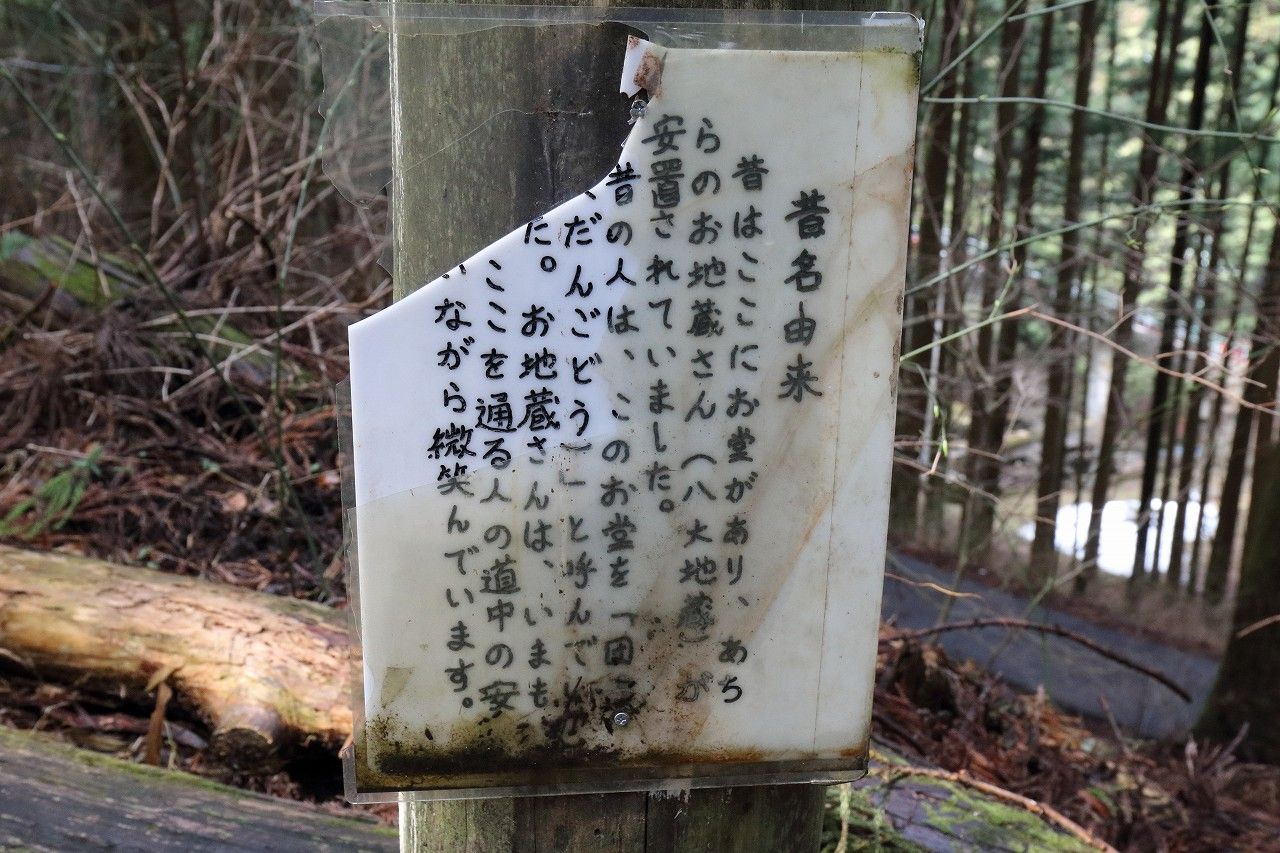 昔名由来
昔はここにお堂があり、あち
らのお地蔵さん（八大地蔵）が
安置されていました。
昔の人は、このお堂を「団
だんごどう）」と呼んでい
た。お地蔵さんは、いまも、
ここを通る人の道中の安
ながら微笑んでいます。